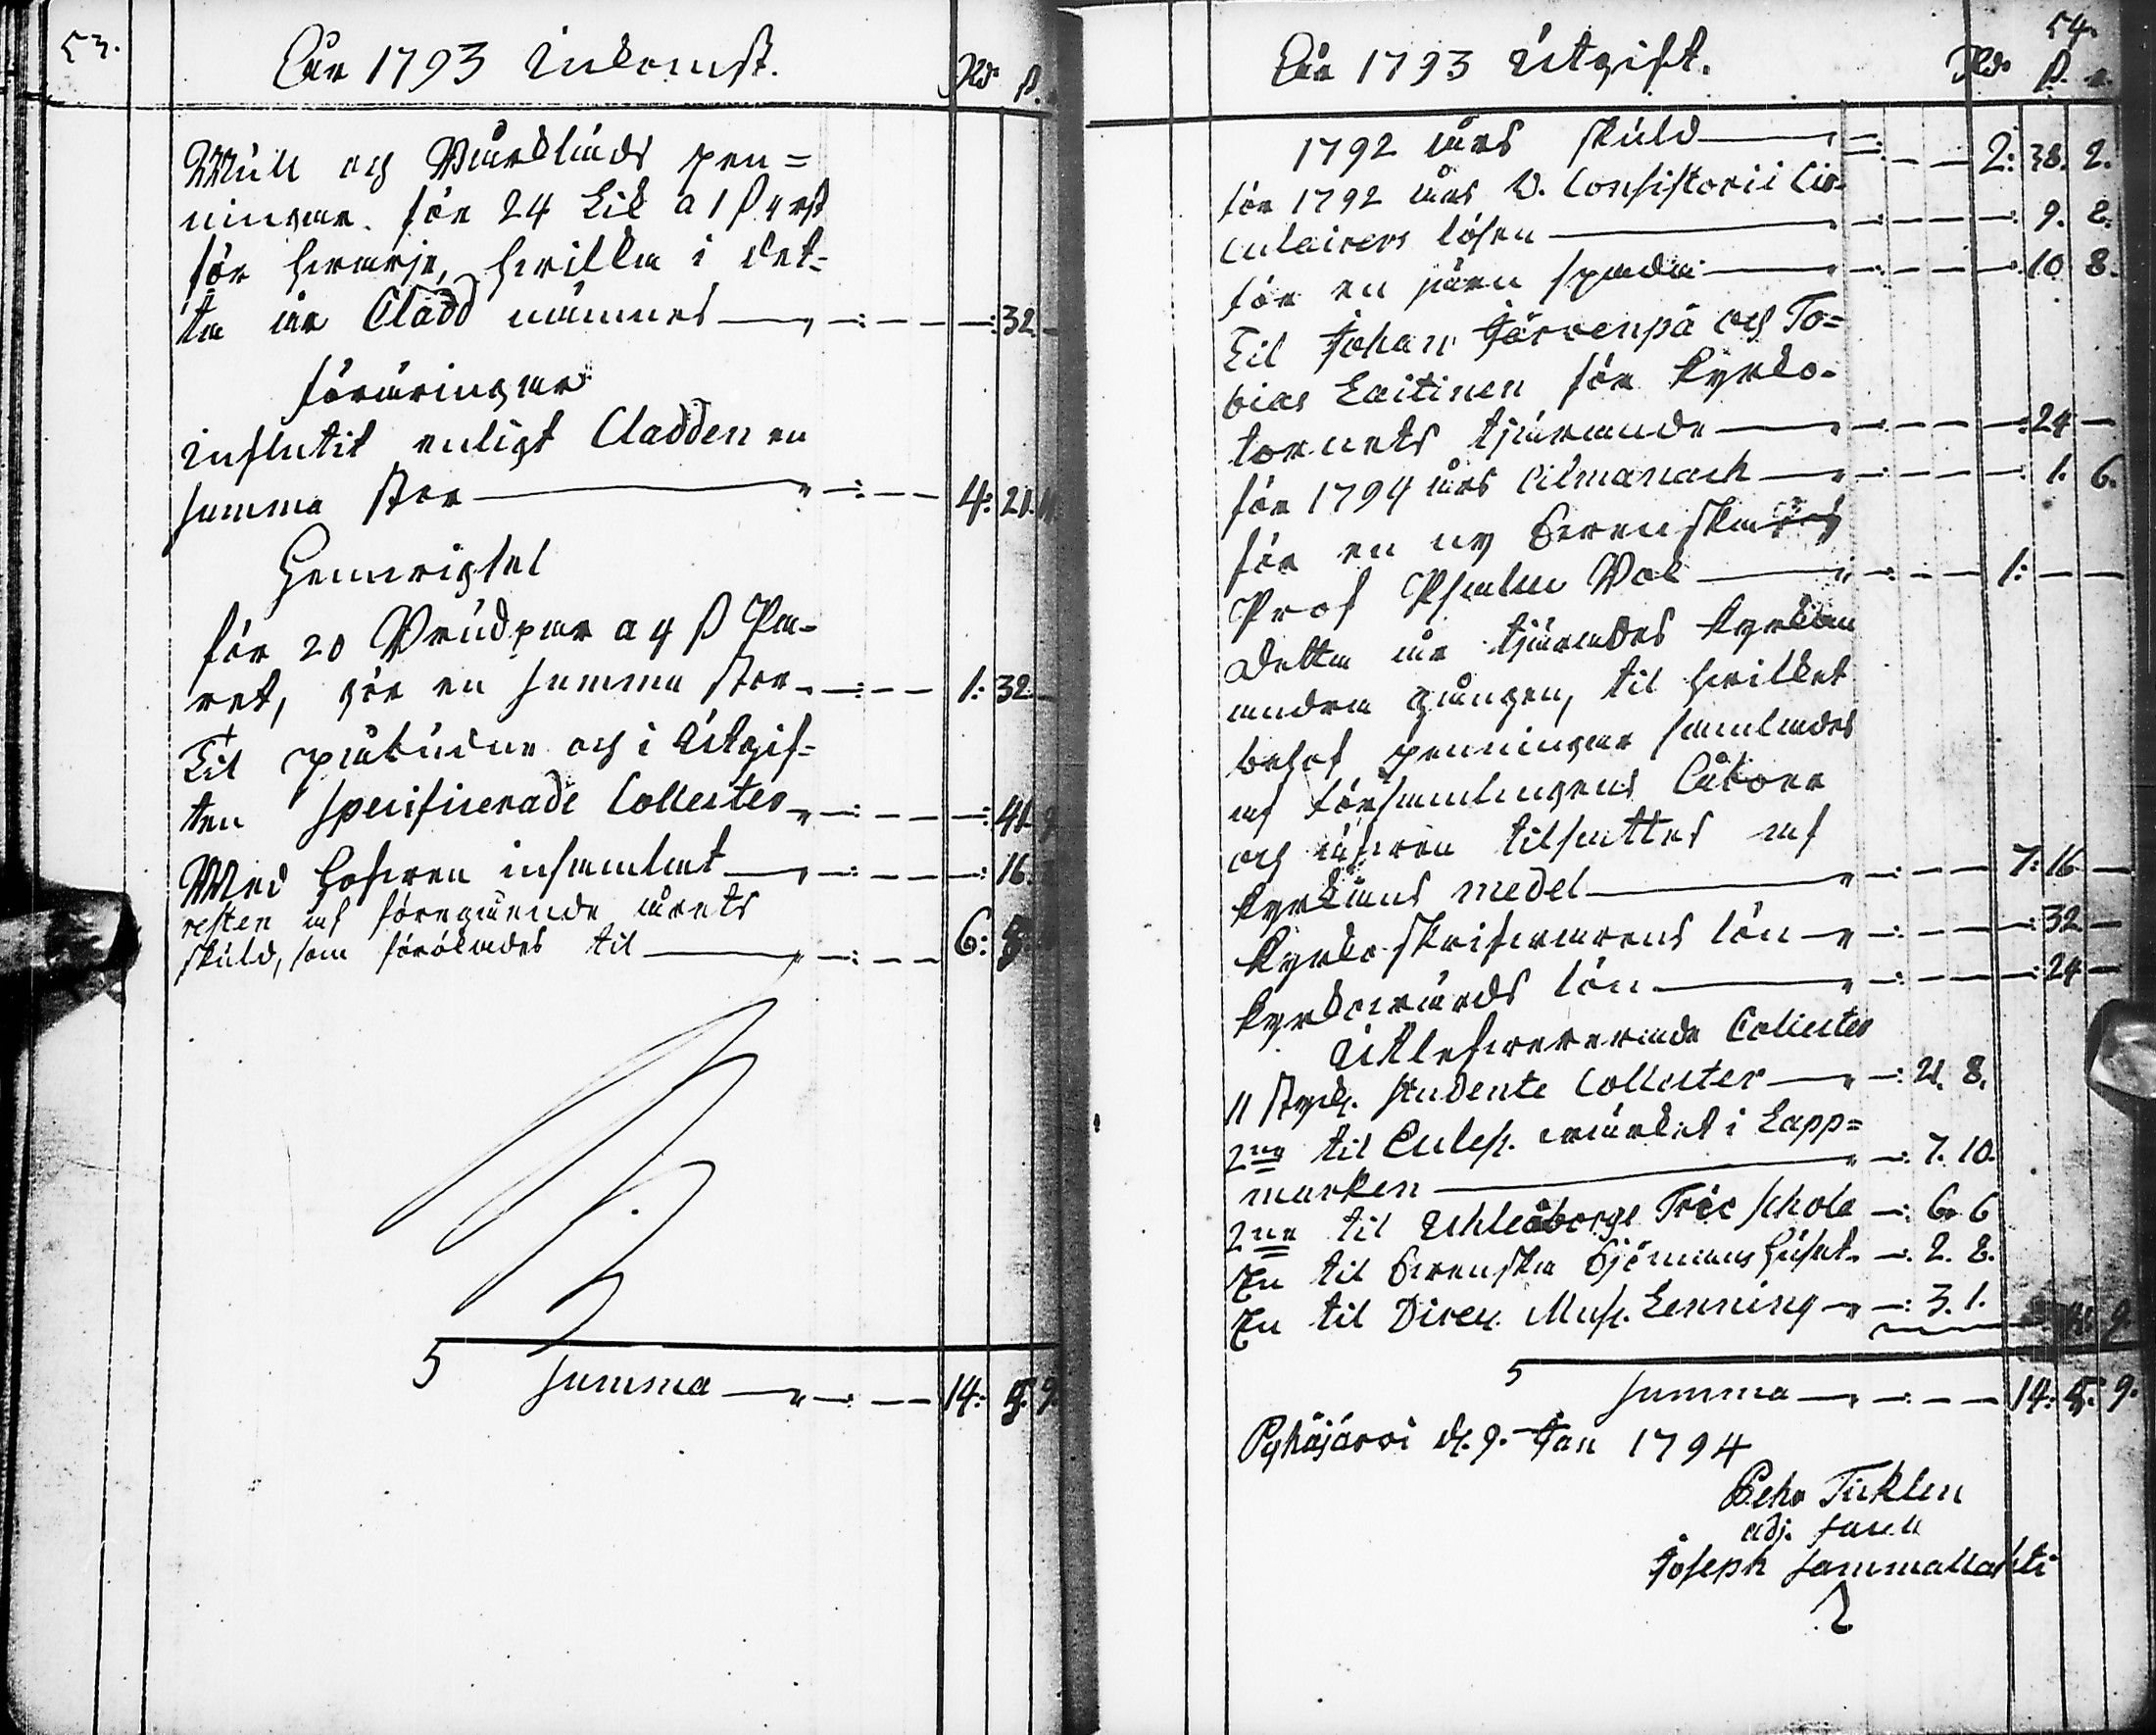 53.
År 1793 Inkomst.
Rd. ß.
Mull och Bårklädes pen=
ningar för 24 Lik a 1 ß 4 rst
för hwarje, hwilka i det=
ta år Cladd nämnes — 32 —
föräringar
influtit enligt Cladden en
summa stor — 4: 21. 11.
Hemwigsel
för 20 Brudpar a 4 ß Pa=
ret, gör en summa stor — 1: 32 —
Til påbudne och i Utgif=
ten specificerade Collecter — 41. 9
Med Hofwen insamlat — 16.
resten af föregående årets
skuld, som förökades til — 6: 5.
summa — 14: 5. 9.
54.
År 1793 Utgift.
Rd. ß. r.
1792 års skuld — 2: 38. 2.
för 1792 års V. Consistorii Cir=
culairers lösen — 9. 2.
för en järn spada — 10 8.
Til Johan Järvenpä och To=
bias Laitinen för kyrko=
tornets tjärande — 24 —
för 1794 års Allmanach — 1. 6.
för en ny Swenska
Prof Psalm Bok — 1: — —
Detta år tjärades kyrkan
andra gången, til hwilket
behof penningar samlades
af församlingens Åboer
och äfwen tilsattes af
kyrkians medel — 7: 16 —
Kyrko skrifwarens lön — 32 —
kyrkowärds lön — 24 —
Utlefwererade Collecter
11 styck. studente Collecter — 21. 8.
2ne til Eccles. wärket i Lapp=
marken — 7. 10.
2ne til Uhleåborgs Triv schola — 6. 6
En til Swenska Sjömans huset — 2. 8.
En til Direc. Mus. Lenning — 3. 1. 41. 9.
summa — 14: 5. 9.
Pyhäjärvi d. 9. Jan 1794
Pehr Ticklen
adj. sacell
Joseph Sammallahti